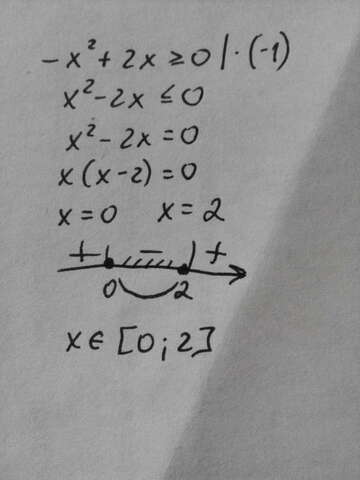 -x² + 2x ≥ 0 | · (-1)
x² - 2x ≤ 0
x² - 2x = 0
x(x-2) = 0
x = 0 x = 2
+ - +
0 2
x ∈ [0; 2]